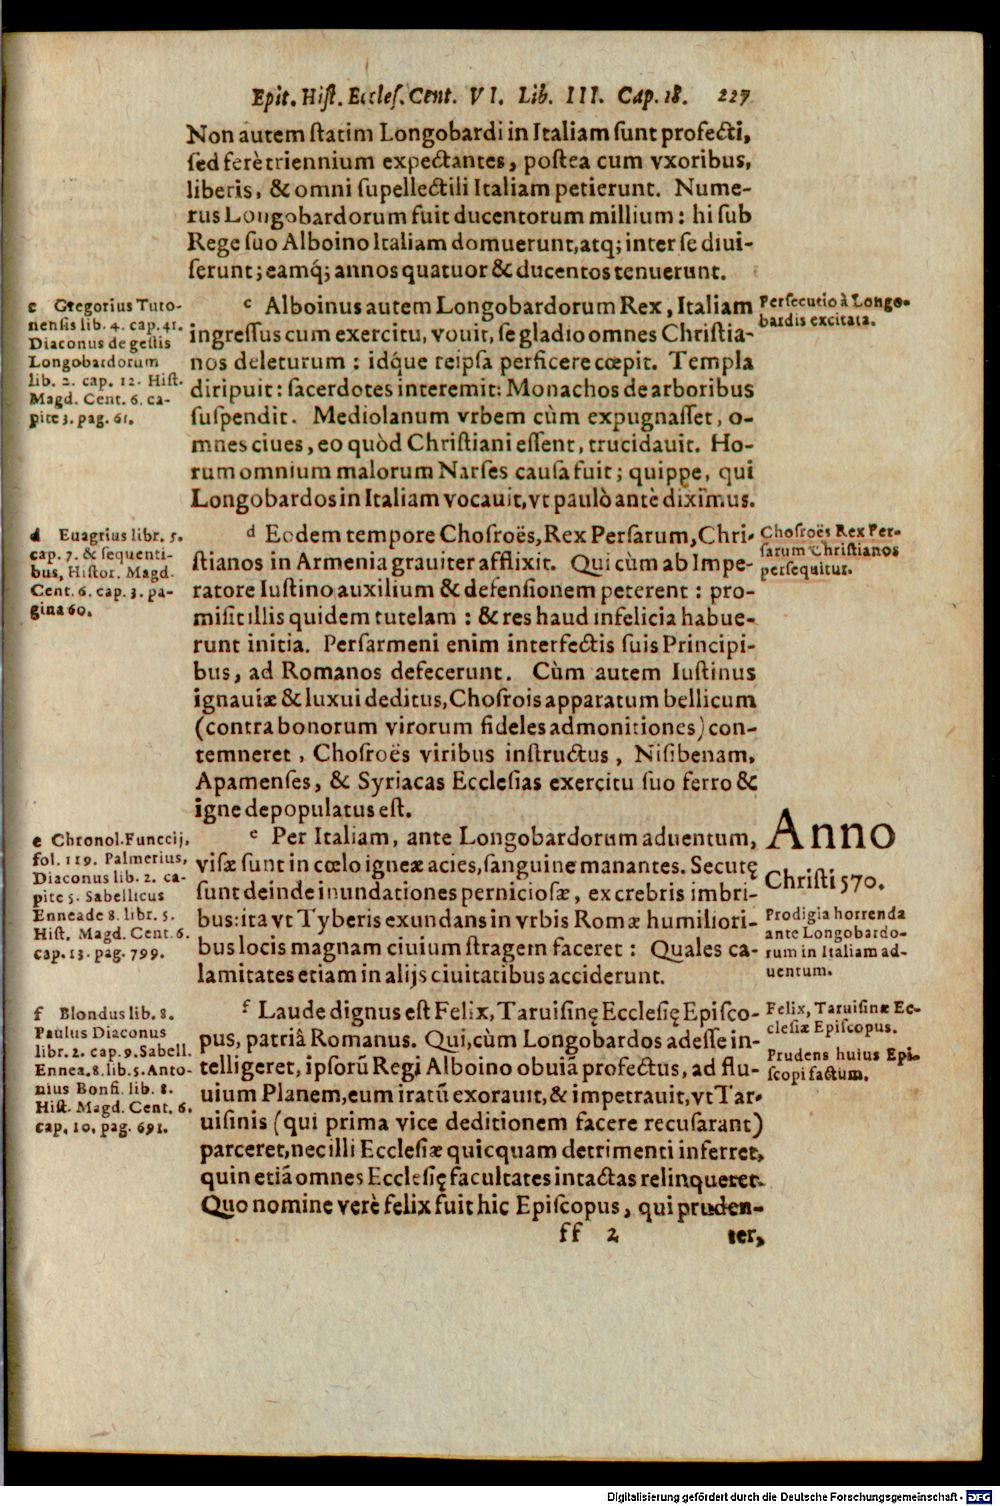 Epit. Hiſt. Eccleſ. Cent. VI. Lib. III. Cap. 18. 227
Non autem ſtatim Longobardi in Italiam ſunt profecti,
ſed ferè triennium expectantes, poſtea cum vxoribus,
liberis, & omni ſupellectili Italiam petierunt. Nume-
rus Longobardorum fuit ducentorum millium: hi ſub
Rege ſuo Alboino Italiam domuerunt, atq; inter ſe diui-
ſerunt; eamq́; annos quatuor & ducentos tenuerunt.
c Alboinus autem Longobardorum Rex, Italiam
ingreſſus cum exercitu, vouit, ſe gladio omnes Chriſtia-
nos deleturum: idq́ue reipſa perficere cœpit. Templa
diripuit: ſacerdotes interemit: Monachos de arboribus
ſuſpendit. Mediolanum vrbem cùm expugnaſſet, o-
mnes ciues, eo quòd Chriſtiani eſſent, trucidauit. Ho-
rum omnium malorum Narſes cauſa fuit; quippe, qui
Longobardos in Italiam vocauit, vt paulò antè diximus.
c Gregorius Turo-
nenſis lib. 4. cap. 41.
Diaconus de geſtis
Longobardorum
lib. 2. cap. 12. Hiſt.
Magd. Cent. 6. ca-
pite 3. pag. 61.
Perſecutio à Longo-
bardis excitata.
d Eodem tempore Choſroës, Rex Perſarum, Chri-
ſtianos in Armenia grauiter afflixit. Qui cùm ab Impe-
ratore Iuſtino auxilium & defenſionem peterent: pro-
miſit illis quidem tutelam: & res haud infelicia habue-
runt initia. Perſarmeni enim interfectis ſuis Principi-
bus, ad Romanos defecerunt. Cùm autem Iuſtinus
ignauiæ & luxui deditus, Choſrois apparatum bellicum
(contra bonorum virorum fideles admonitiones) con-
temneret, Choſroës viribus inſtructus, Niſibenam,
Apamenſes, & Syriacas Eccleſias exercitu ſuo ferro &
igne depopulatus eſt.
d Euagrius libr. 5.
cap. 7. & ſequenti-
bus, Hiſtor. Magd.
Cent. 6. cap. 3. pa-
gina 60.
Choſroës Rex Per-
ſarum Chriſtianos
perſequitur.
e Per Italiam, ante Longobardorum aduentum,
viſæ ſunt in cœlo igneæ acies, ſanguine manantes. Secutę
ſunt deinde inundationes pernicioſæ, ex crebris imbri-
bus: ita vt Tyberis exundans in vrbis Romæ humiliori-
bus locis magnam ciuium ſtragem faceret: Quales ca-
lamitates etiam in alijs ciuitatibus acciderunt.
e Chronol. Funccij,
fol. 119. Palmerius,
Diaconus lib. 2. ca-
pite 5. Sabellicus
Enneade 8. libr. 5.
Hiſt. Magd. Cent. 6.
cap. 13. pag. 799.
Anno
Chriſti 570.
Prodigia horrenda
ante Longobardo-
rum in Italiam ad-
uentum.
f Laude dignus eſt Felix, Taruiſinę Eccleſię Epiſco-
pus, patriâ Romanus. Qui, cùm Longobardos adeſſe in-
telligeret, ipſorũ Regi Alboino obuiã profectus, ad flu-
uium Planem, eum iratũ exorauit, & impetrauit, vt Tar-
uiſinis (qui prima vice deditionem facere recuſarant)
parceret, nec illi Eccleſiæ quicquam detrimenti inferret,
quin etiã omnes Eccleſię facultates intactas relinqueret.
Quo nomine verè felix fuit hic Epiſcopus, qui pruden-
f Blondus lib. 8.
Paulus Diaconus
libr. 2. cap. 9. Sabell.
Ennea. 8. lib. 5. Anto-
nius Bonfi. lib. 8.
Hiſt. Magd. Cent. 6.
cap. 10. pag. 691.
Felix, Taruiſinæ Ec-
cleſiæ Epiſcopus.
Prudens huius Epi-
ſcopi factum.
ff 2 ter,
Digitalisierung gefördert durch die Deutsche Forschungsgemeinschaft - DFG